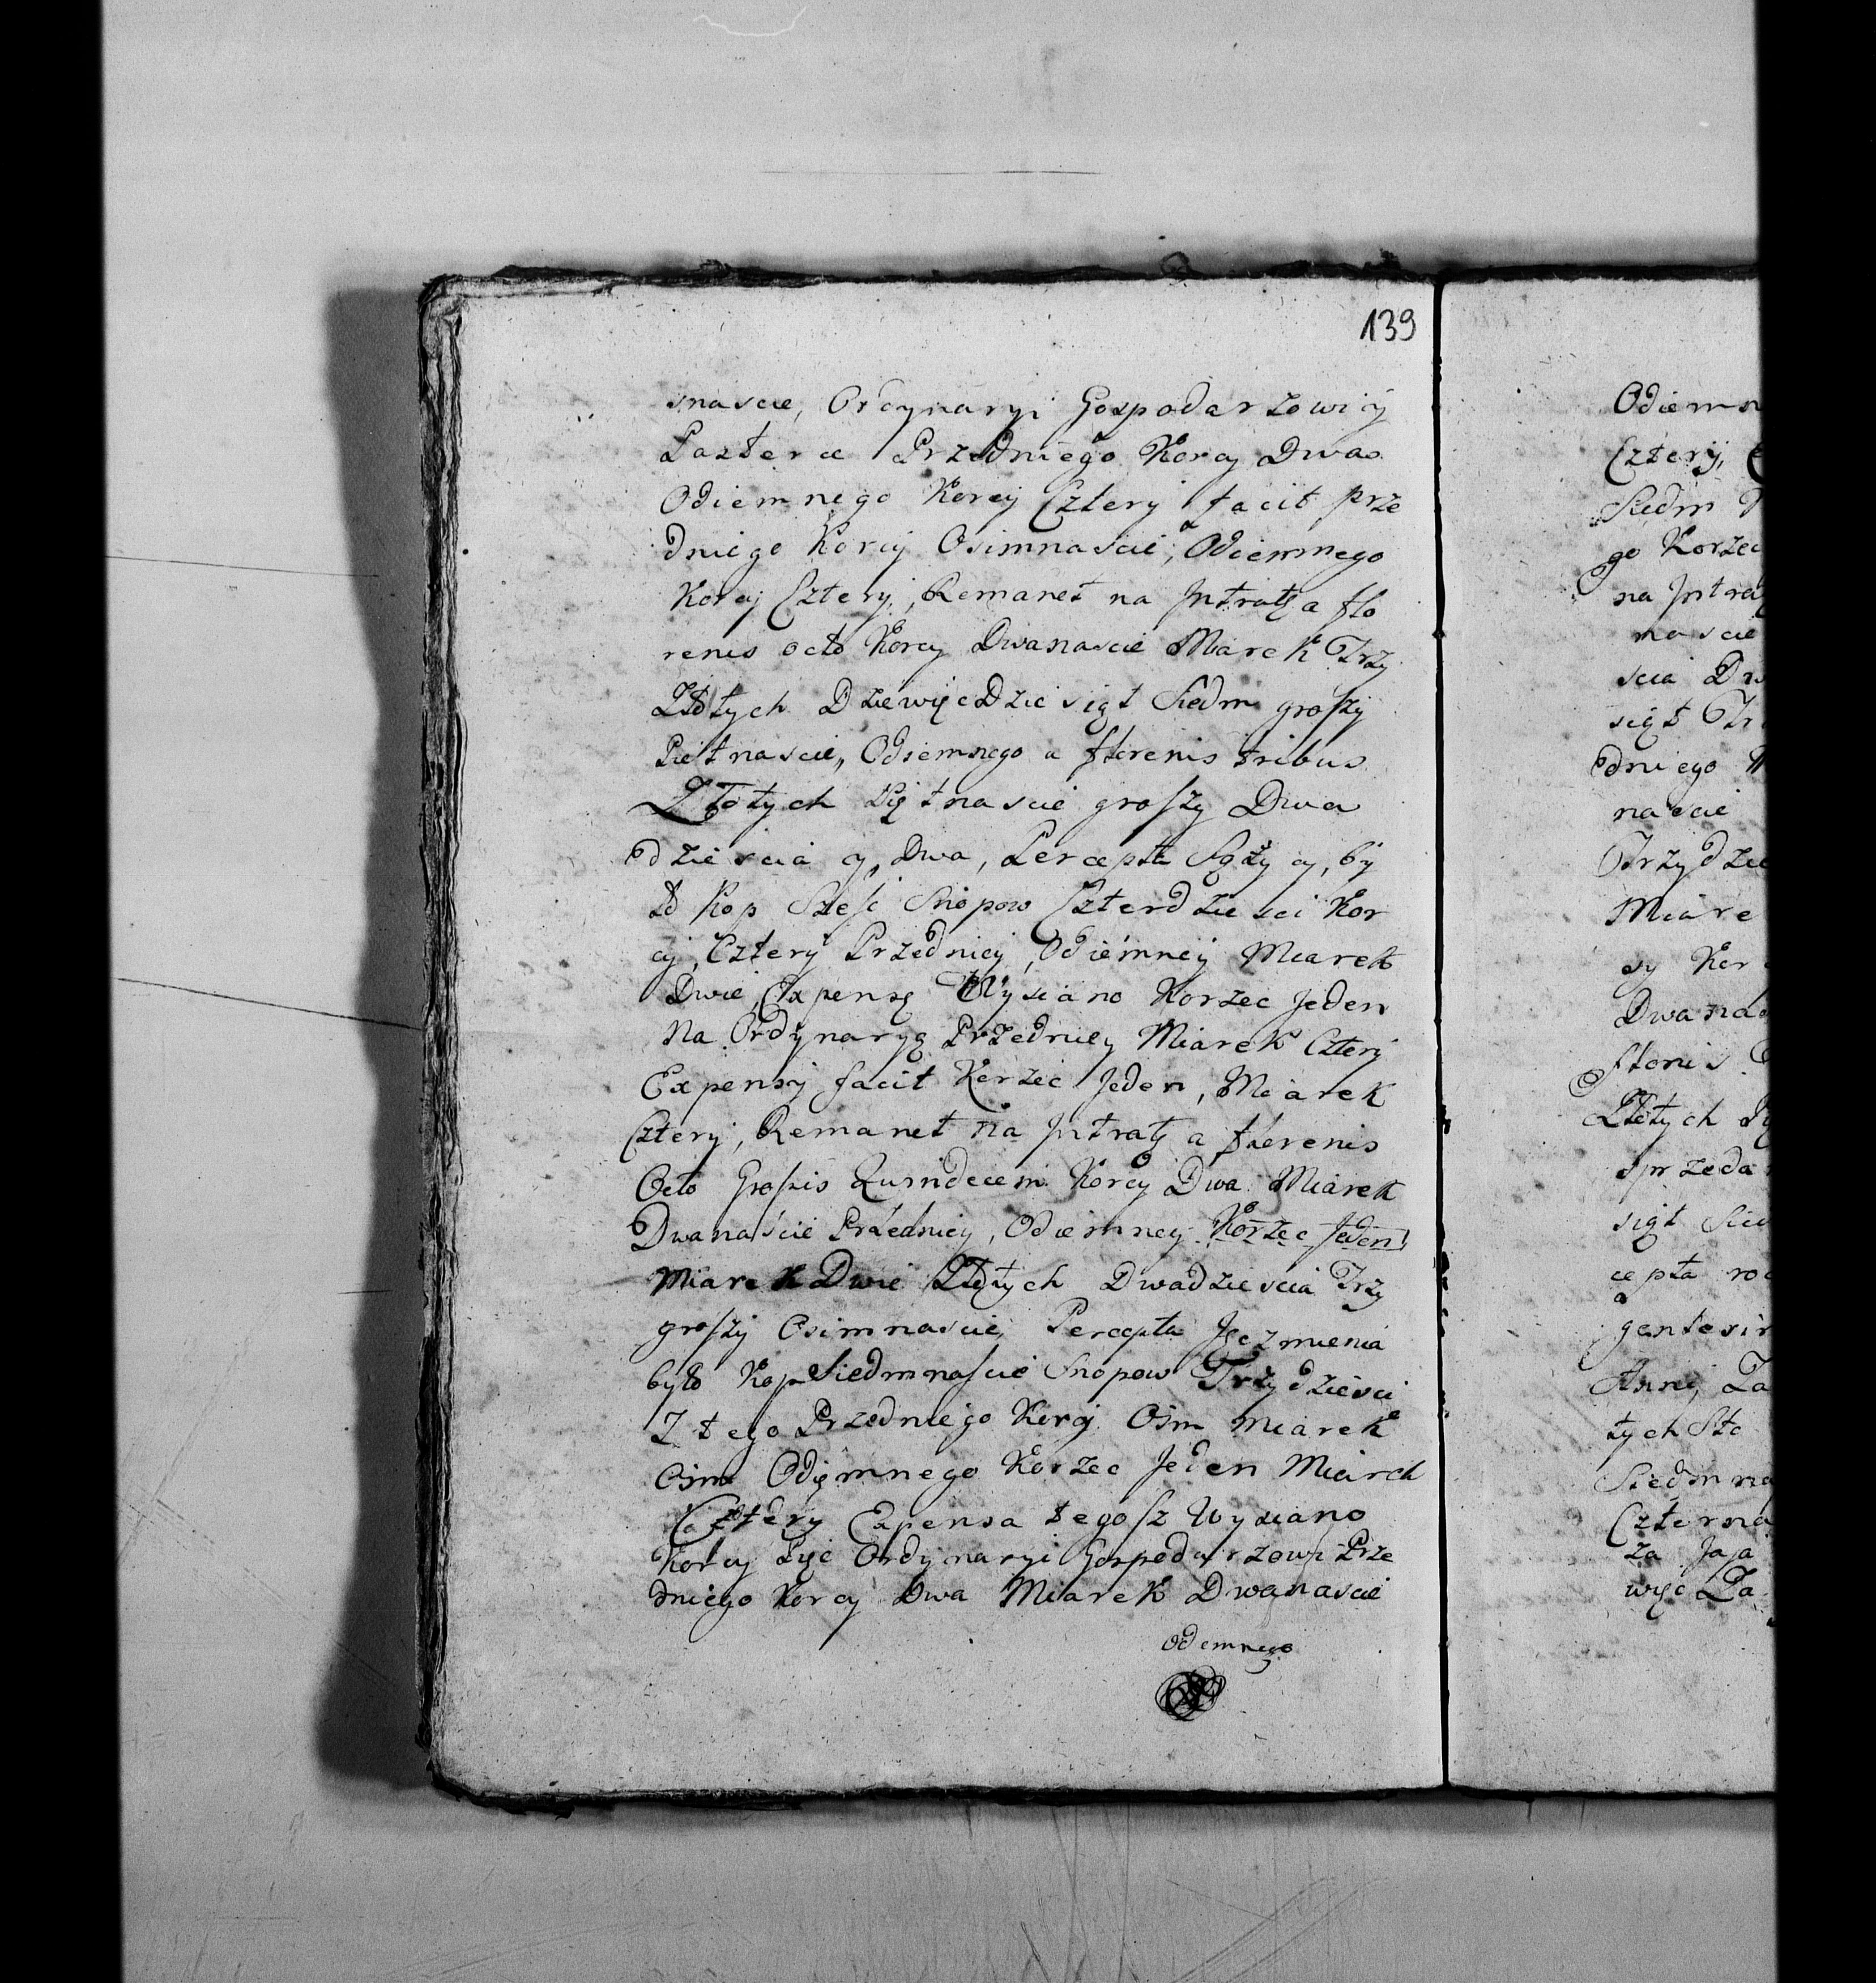 139
snascie, Ordynaryi Gospodarzowi ÿ
Pasterce Przedniego Korcÿ Dwa
Odiemnego Korcÿ Cztery facit prze
dniego Korcÿ Osimnascie, Odiemnego
Korcÿ Cztery, Remanet na Jntratę a flo
renis octo Korcy Dwanascie Miarek Trzy
Złotych Dziewięcdziesiąt Siedm groszÿ
Pietnascie, Odiemnego a florenis tribus
Złotych Piętnascie groszy Dwa
dziescia ÿ Dwa, Percepta Sążycÿ, by
ło Kop Sześć Snopow Czterdziesci Kor
cÿ, Czterÿ Przedniey, Odiemneÿ Miarek
Dwie, Expensę Wysiano Korzec Jeden
Na Ordÿnaryą Przedniey Miarek Czterÿ
Expensÿ facit Korzec Jeden, Miarek
Czterÿ, Remanet na Jntratę a florenis
Octo Grosis Quindecem Korcÿ Dwa Miarek
Dwanaście Przedniey, Odiemneÿ Korzec Jeden
Miarek Dwie Złotych Dwadziescia Trzy
groszÿ Osimnascie, Percepta Jęczmienia
było Kop Siedmnascie Snopow Trzydziesci
Z tego Przedniego Korcÿ Ośm Miarek
Ośm Odięmnego Korzec Jeden Miarek
Cztery Expensa tegosz Wysiano
Korcy Pięć Ordÿnaryi Gospodarzowi Prze
dniego Korcÿ Dwa Miarek Dwanascie
Odemnego
Odiemn
Czterÿ,
Siedm
go Korzec
na Jntra
nascie
scia Dw
siąt Tr
dniego
nascie
Trzydzie
Miare
cy Kor
Dwana
Złotych
sprzeda
cepta
tych Sto
Siedmna
Czterna
za Jaja
więc Za